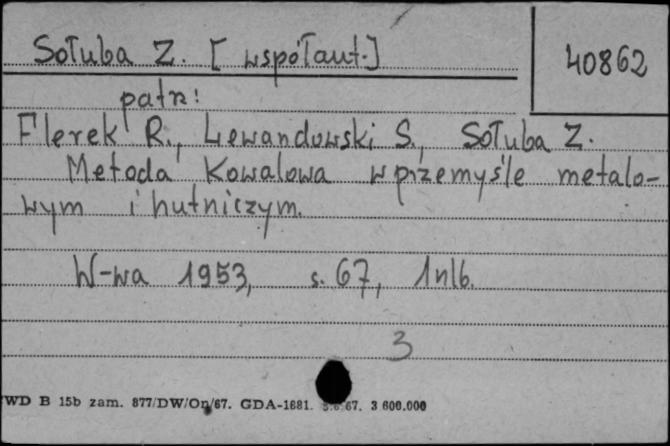 Sołuba Z. [współaut.]
40862
patrz:
Flerek R., Lewandowski S., Sołuba Z.
Metoda Kowalowa w przemyśle metalo-
wym i hutniczym.
W-wa 1953, s. 67, 1 nlb.
3
WD B 15b zam. 877/DW/On/67. GDA-1681. 67. 3 600.000